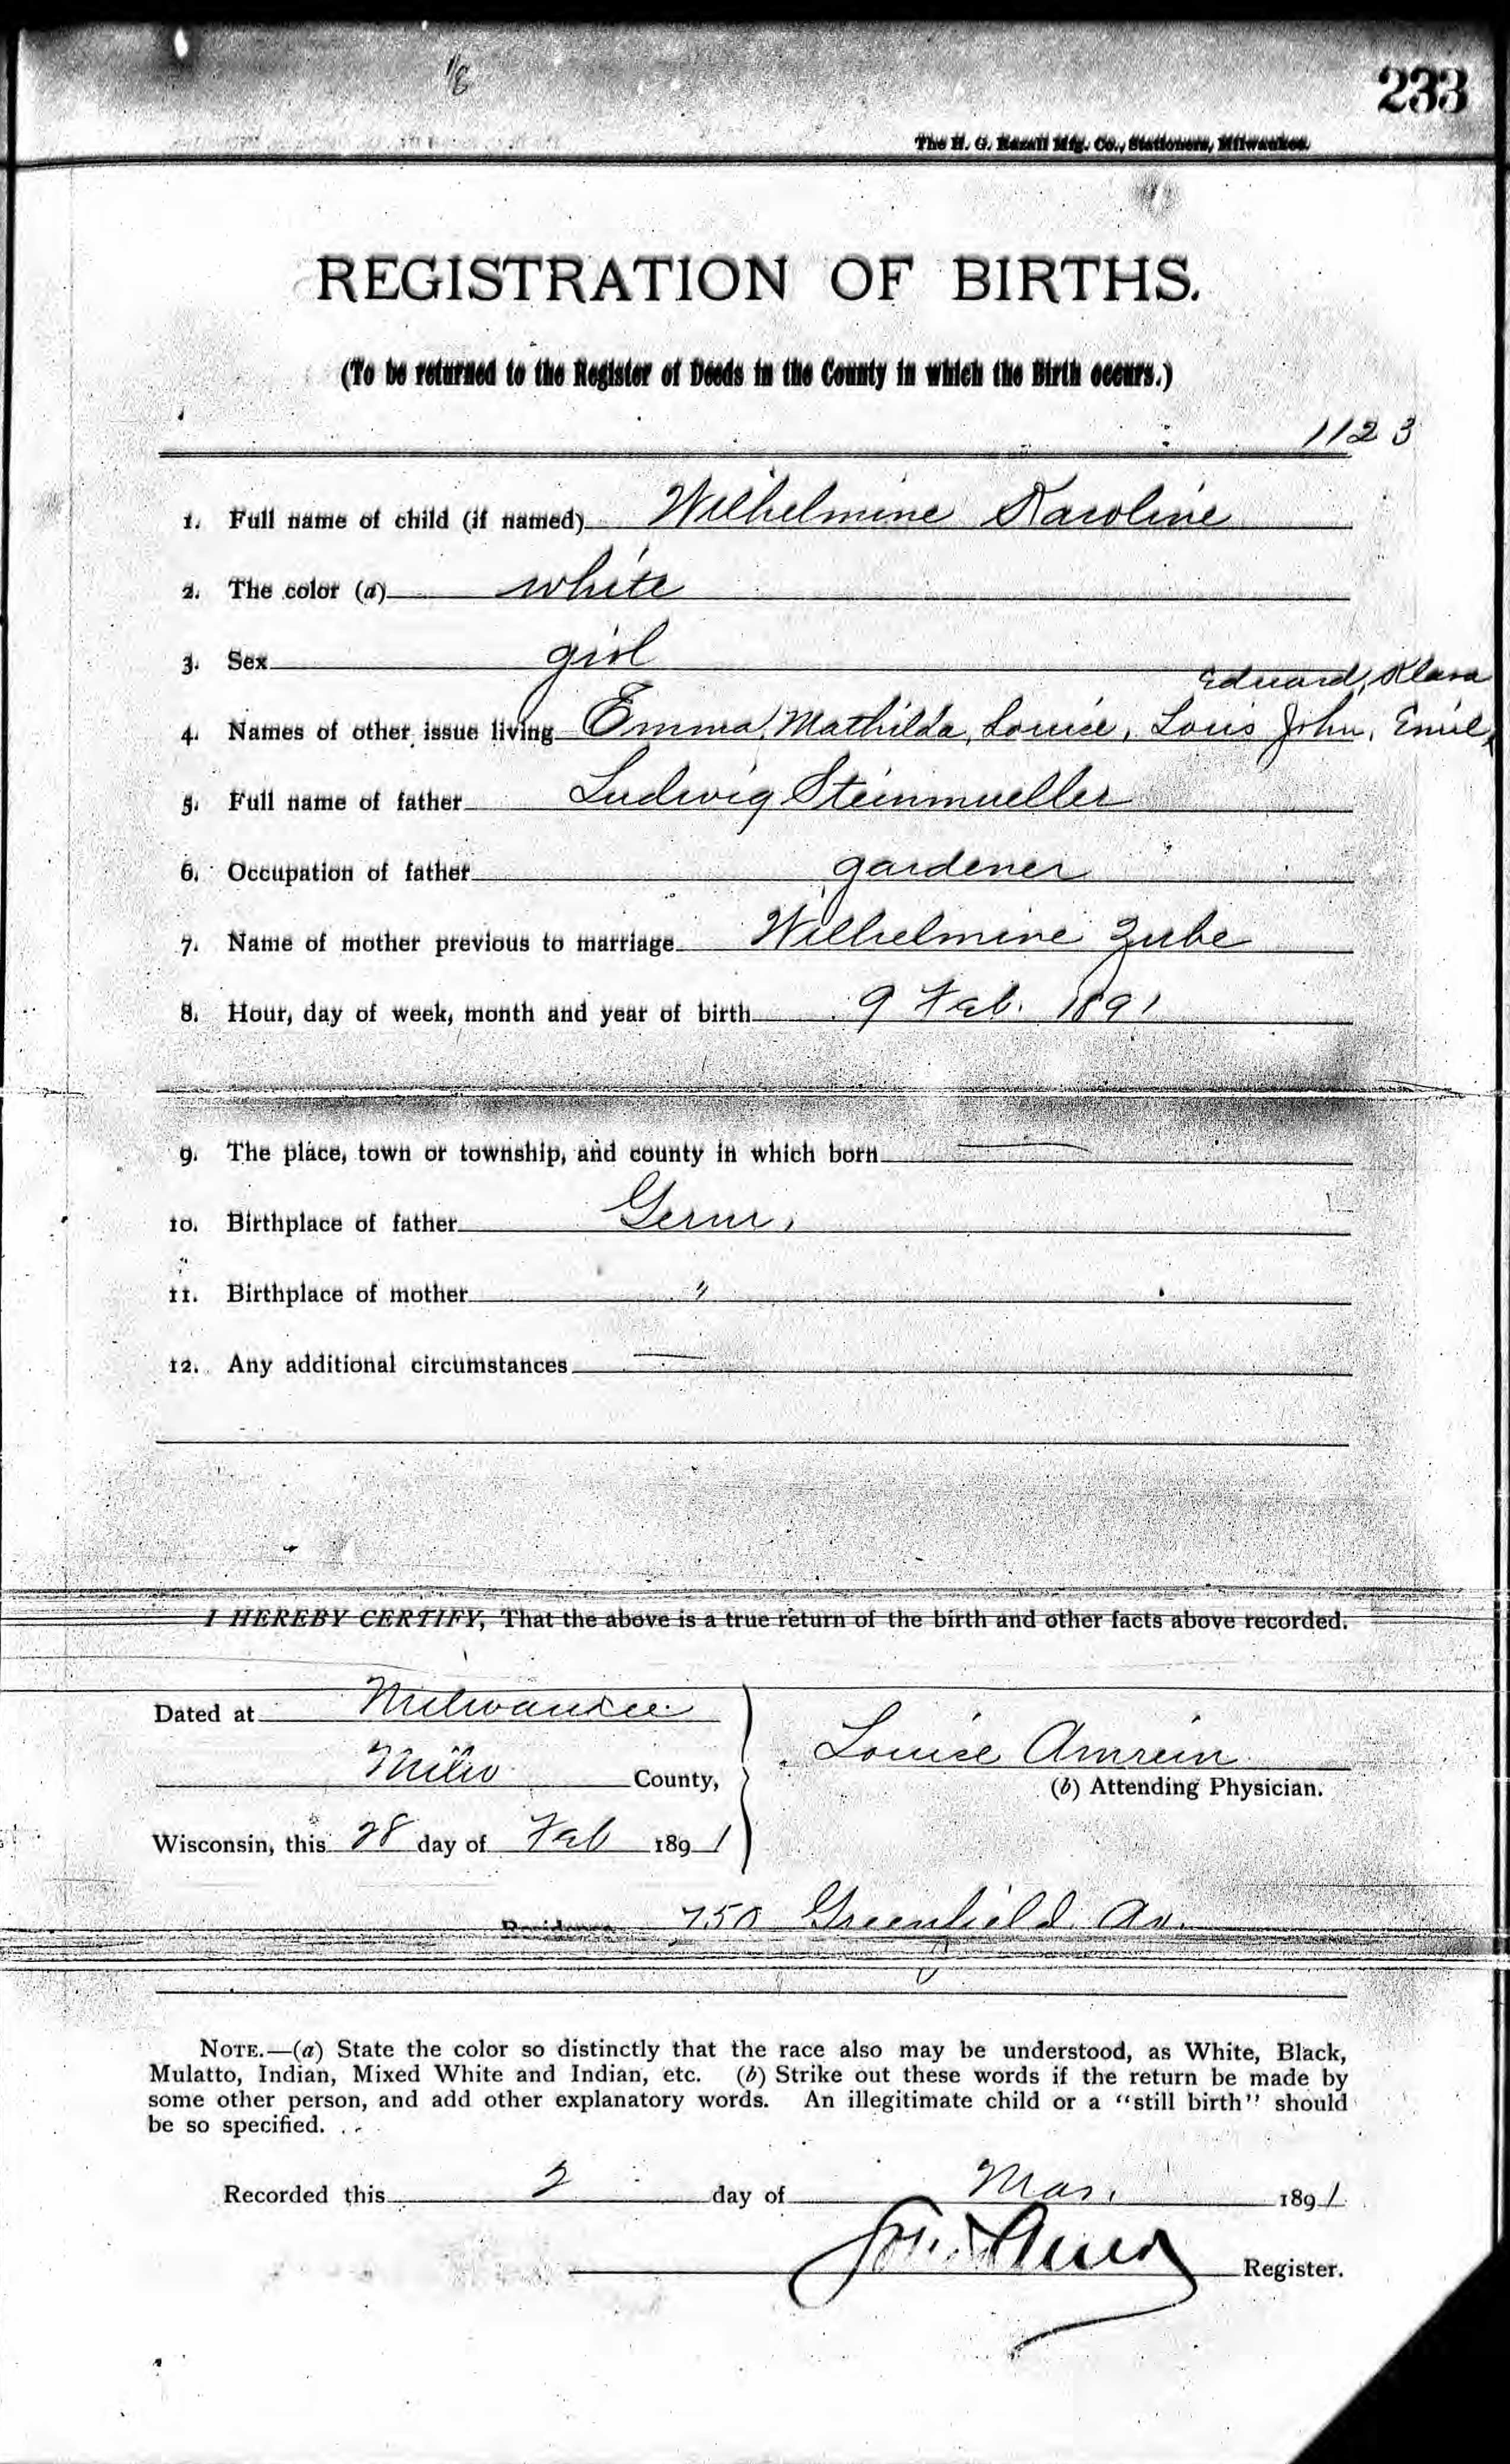 233
The H. G. Razall Mfg. Co., Stationers, Milwaukee.
REGISTRATION OF BIRTHS.
(To be returned to the Register of Deeds in the County in which the Birth occurs.)
1123
1. Full name of child (if named) Wilhelmine Karoline
2. The color (a) white
3. Sex girl
Eduard, Klara
4. Names of other issue living Emma, Mathilda, Louise, Louis John, Emil,
5. Full name of father Ludwig Steinmueller
6. Occupation of father gardener
7. Name of mother previous to marriage Wilhelmine Zube
8. Hour, day of week, month and year of birth 9 Feb. 1891
9. The place, town or township, and county in which born —
10. Birthplace of father Germ,
11. Birthplace of mother "
12. Any additional circumstances —
I HEREBY CERTIFY, That the above is a true return of the birth and other facts above recorded.
Dated at Milwaukee
Milw County,
Louise Amrein
(b) Attending Physician.
Wisconsin, this 28 day of Feb 1891
Residence 750 Greenfield Av.
NOTE.—(a) State the color so distinctly that the race also may be understood, as White, Black,
Mulatto, Indian, Mixed White and Indian, etc. (b) Strike out these words if the return be made by
some other person, and add other explanatory words. An illegitimate child or a "still birth" should
be so specified.
Recorded this 2 day of Mar. 1891
Register.